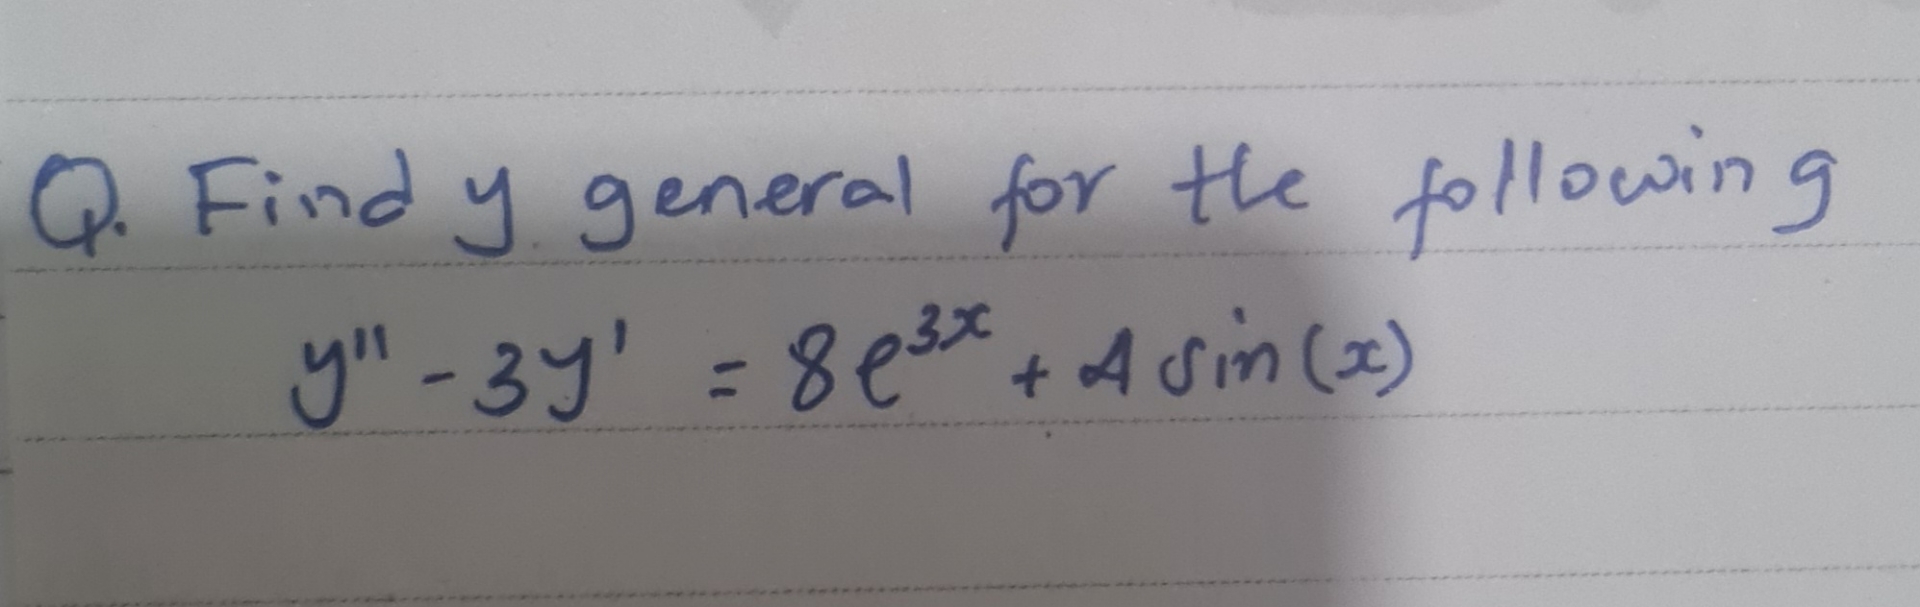 Q. Find y general for the following
y'' - 3y' = 8e^{3x} + 4 sin(x)